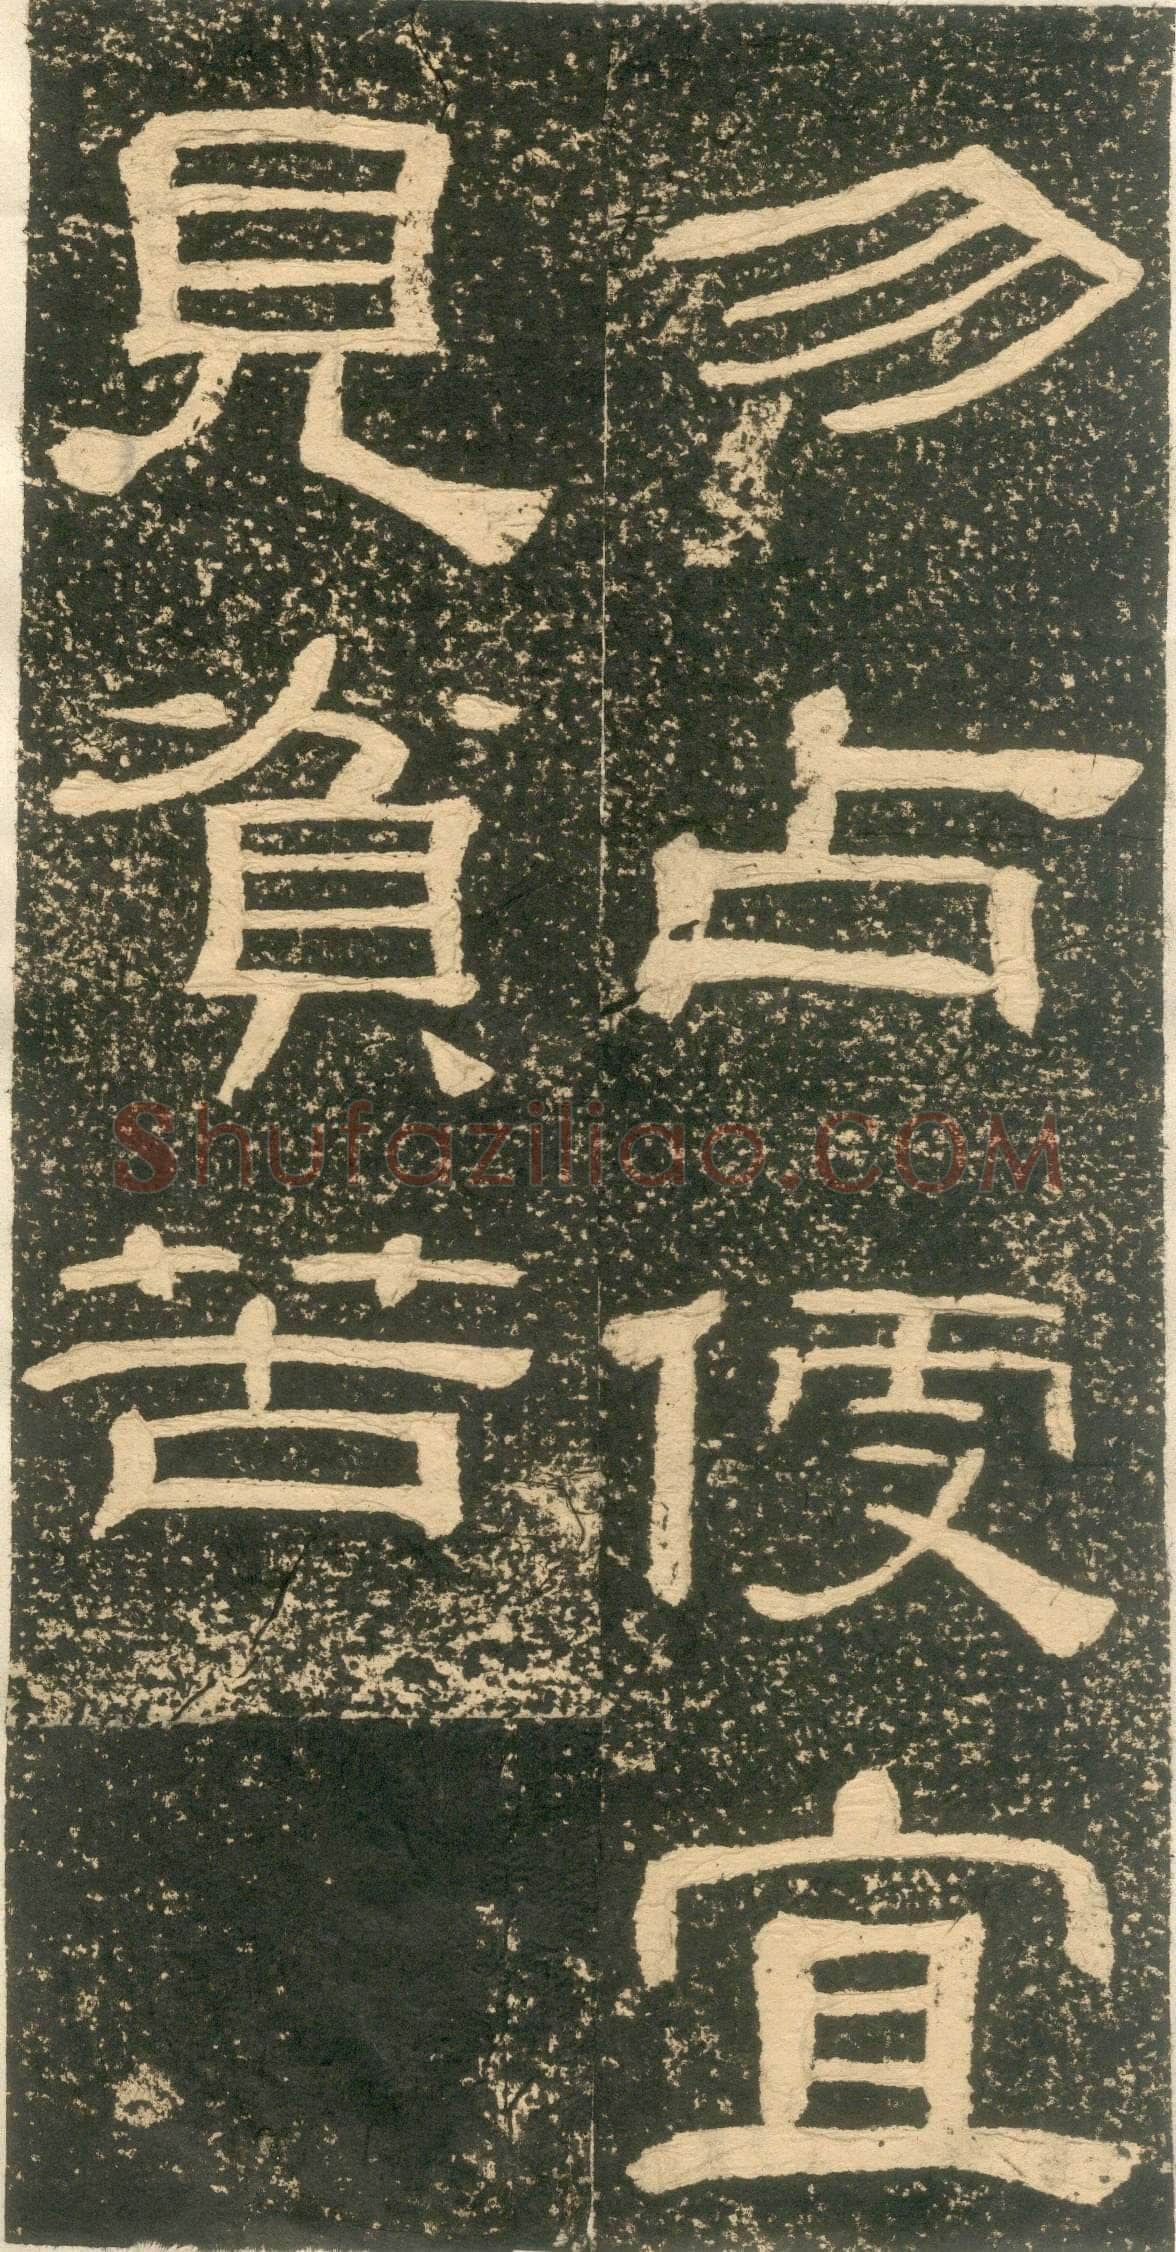 勿占便宜
見貧苦
Shufaziliao.COM